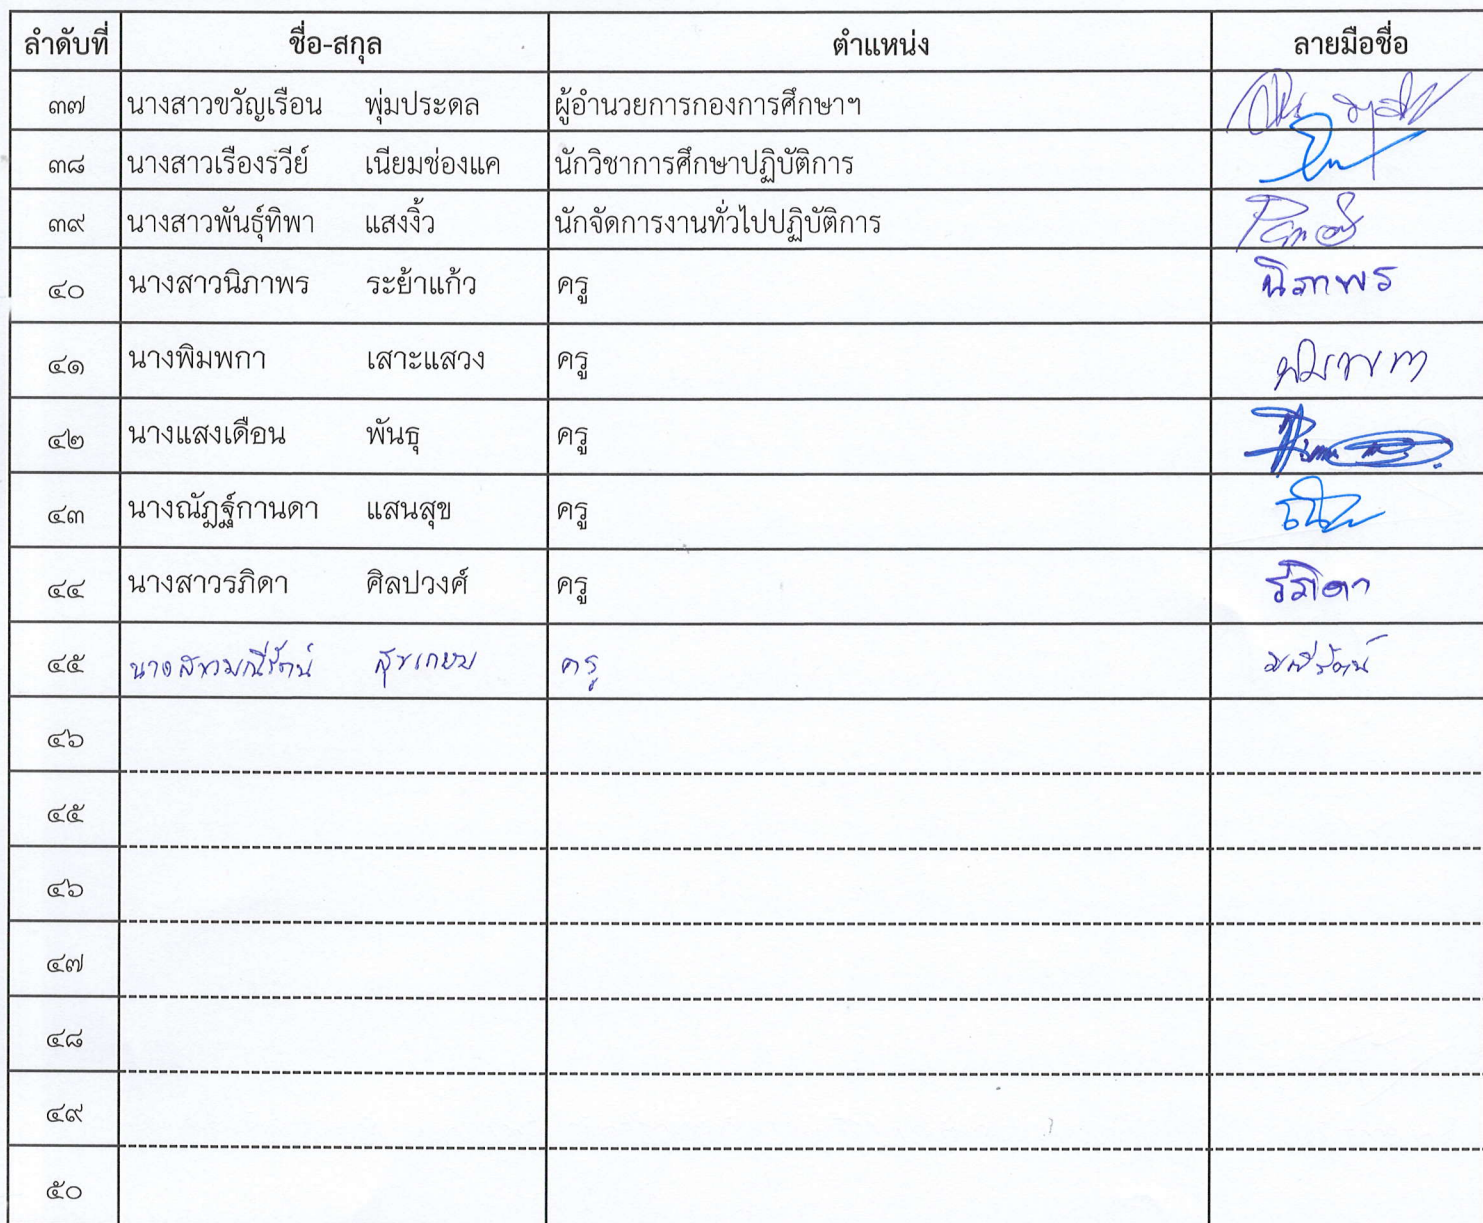 ลำดับที่ ชื่อ-สกุล ตำแหน่ง ลายมือชื่อ
๓๗ นางสาวขวัญเรือน พุ่มประดล ผู้อำนวยการกองการศึกษาฯ
๓๘ นางสาวเรืองรวีย์ เนียมช่องแค นักวิชาการศึกษาปฏิบัติการ
๓๙ นางสาวพันธุ์ทิพา แสงงิ้ว นักจัดการงานทั่วไปปฏิบัติการ
๔๐ นางสาวนิภาพร ระย้าแก้ว ครู นิภาพร
๔๑ นางพิมพกา เสาะแสวง ครู พิมพกา
๔๒ นางแสงเดือน พันธุ ครู
๔๓ นางณัฎฐ์กานดา แสนสุข ครู
๔๔ นางสาวรภิดา ศิลปวงศ์ ครู รภิดา
๔๕ นางสาวมณีรัตน์ สุขเกษม ครู มณีรัตน์
๔๖
๔๕
๔๖
๔๗
๔๘
๔๙
๕๐